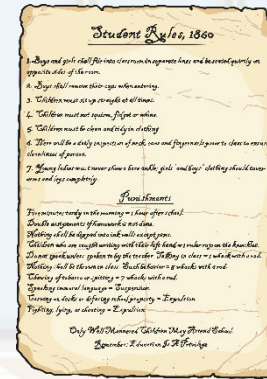 Student Rules, 1860
1. Boys and girls shall file into classroom in separate lines and be seated quietly on
opposite sides of the room.
2. Boys shall remove their caps when entering.
3. Children must sit up straight at all times.
4. Children must not squirm, fidget or whine.
5. Children must be clean and tidy in clothing
6. There will be a daily inspection of neck, ears and fingernails prior to class to ensure
cleanliness of person.
7. Young ladies must never show bare ankle; girls' and boys' clothing should cover
arms and legs completely.
Punishments
Five minutes tardy in the morning = 1 hour after school.
Double assignments if homework is not done.
Nothing shall be dipped into ink wells except pens.
Children who are caught writing with their left hand = ruler raps on the knuckles.
Do not speak unless spoken to by the teacher. Talking in class = 1 whack with a rod.
Nothing shall be thrown in class. Such behavior = 5 whacks with a rod.
Chewing of tobacco or spitting = 7 whacks with a rod.
Speaking immoral language = Suspension
Carving on desks or defacing school property = Expulsion
Fighting, lying, or cheating = Expulsion
Only Well Mannered Children May Attend School.
Remember: Education Is A Privilege